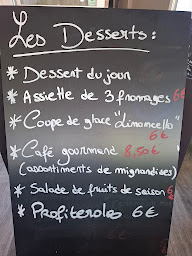 Les Desserts :
* Dessert du jour
* Assiette de 3 fromages 6€
* Coupe de glace "Limoncello"
6€
* Café gourmand 8,50€
(assortiments de mignardises)
* Salade de fruits de saison 6€
* Profiteroles 6€